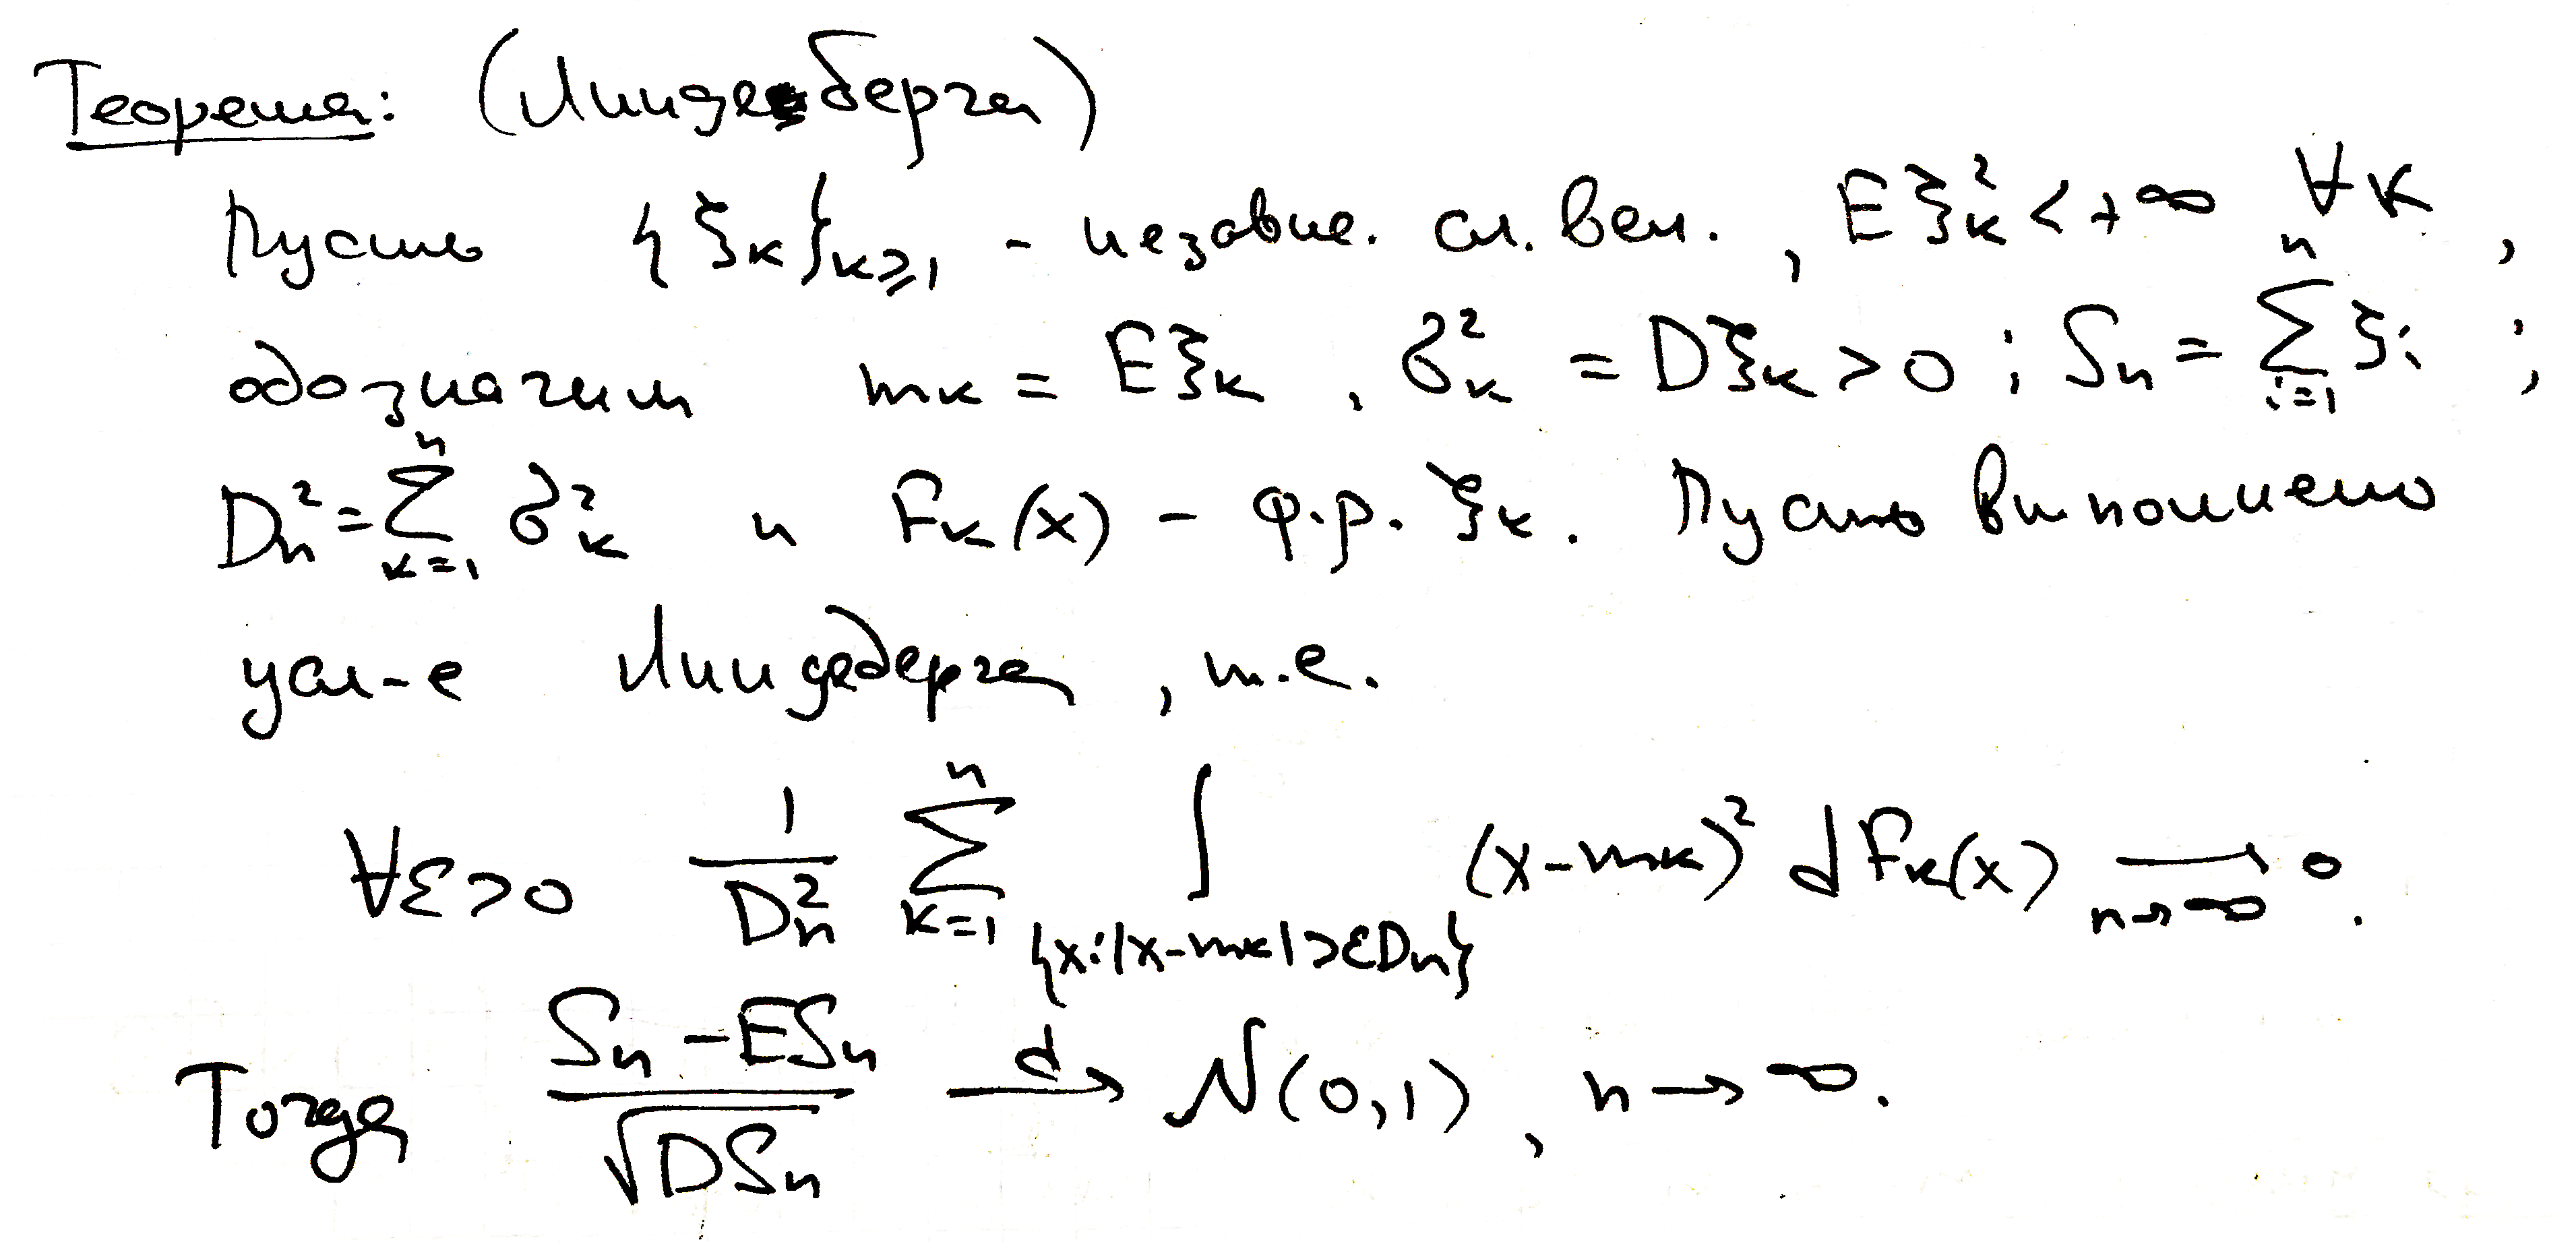 Теорема: (Линдеберга)
Пусть {ξₖ}ₖ≥₁ - независ. сл. вел., Eξₖ² < +∞ ∀k,
обозначим mₖ = Eξₖ, σₖ² = Dξₖ > 0; Sₙ = ∑ᵢ₌₁ⁿ ξᵢ;
Dₙ² = ∑ₖ₌₁ⁿ σₖ² и Fₖ(x) - ф.р. ξₖ. Пусть выполнено
усл-е Линдеберга, т.е.
∀ε>0 1/Dₙ² ∑ₖ₌₁ⁿ ∫_{x:|x-mₖ|>εDₙ} (x-mₖ)² dFₖ(x) ⟶_{n→∞} 0.
Тогда (Sₙ - ESₙ)/√DSₙ →ᵈ N(0,1), n → ∞.